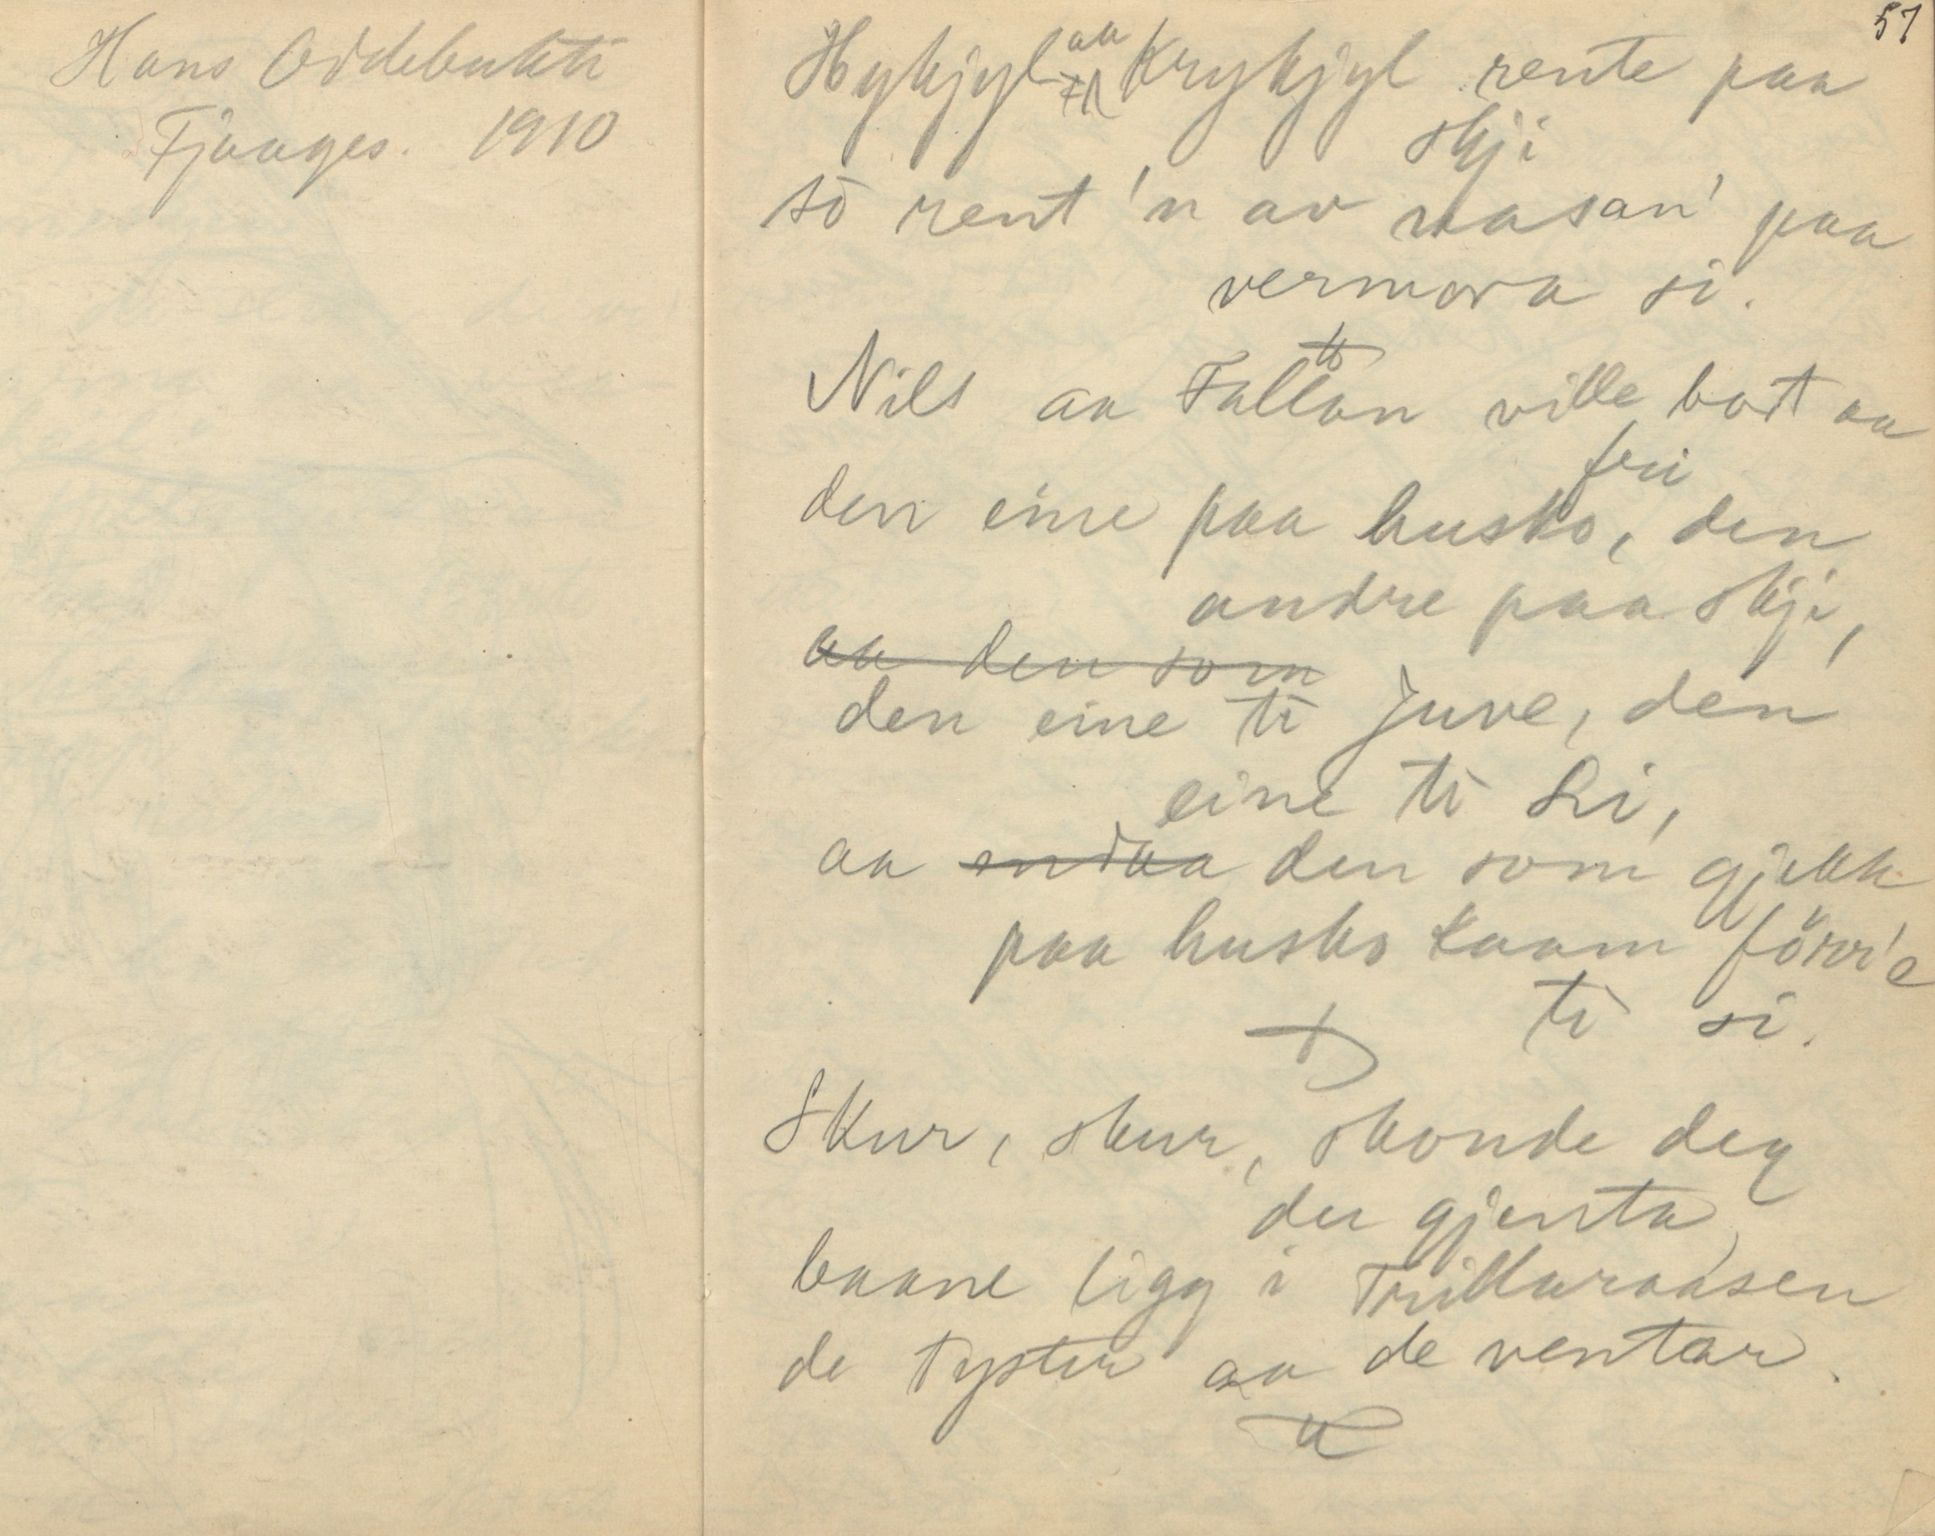 Hans Oddebukti
Fjaages. 1910
57
Hykjyl aa Krykjyl rente paa
skji
so rent 'n av nasan' paa
vermora si.
Nils aa Fallan ville bort aa
fri
den eine paa husko, den
andre paa skji,
aa den som
den eine ti Juve, den
eine ti Li,
aa endaa den som gjekk
paa husko kaam förr'e
ti si.
Skur, skur, skonde deg
du gjenta
baane ligg i Trillaraasen
de tyster aa de ventar.